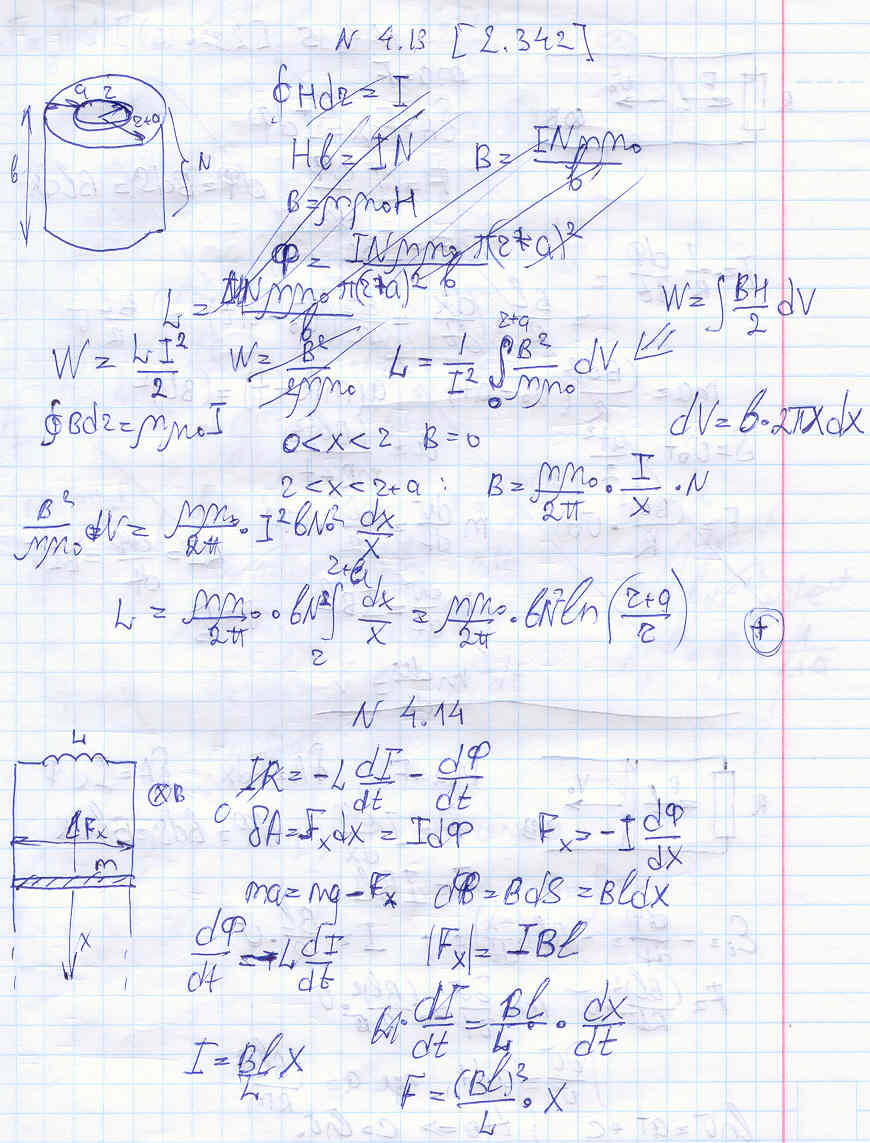 N 4.13 [2.342]
a r r+a b N
∮Hdr = I
Hb = IN
B = INμμ₀/b
B = μμ₀H
Φ = INμμ₀/b π(r+a)²
L = INμμ₀ π(r+a)²/b
W = ∫ BH/2 dV
W = LI²/2 W = B²/2μμ₀ L = 1/I² ∫₀^(r+a) B²/μμ₀ dV
∮Bdr = μμ₀I 0<x<r B=0 dV = b·2πxdx
r<x<r+a : B = μμ₀/2π · I/x · N
B²/μμ₀ dV = μμ₀/2π · I²bN² dx/x
L = μμ₀/2π · bN² ∫_r^(r+a) dx/x = μμ₀/2π · bN² ln((r+a)/r) +
N 4.14
L ⊗B Fx m x
IR = -L dI/dt - dΦ/dt
0
δA = Fxdx = IdΦ Fx = -I dΦ/dx
ma = mg - Fx dΦ = BdS = Bldx
dΦ/dt = -L dI/dt |Fx| = IBl
dI/dt = Bl/L · dx/dt
I = Bl/L x
F = (Bl)²/L · x